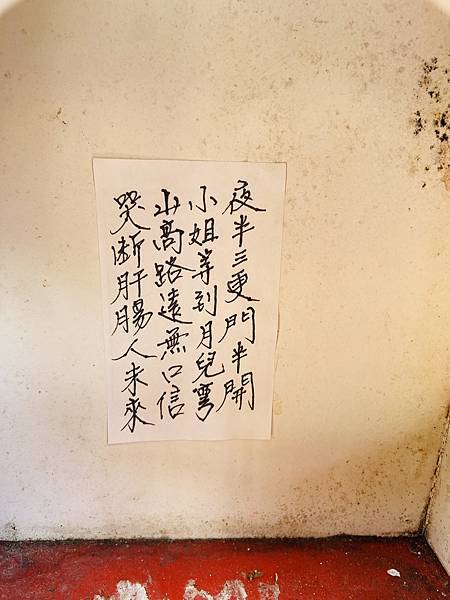 夜半三更門半開
小姐等到月兒彎
山高路遠無口信
哭断肝腸人未來